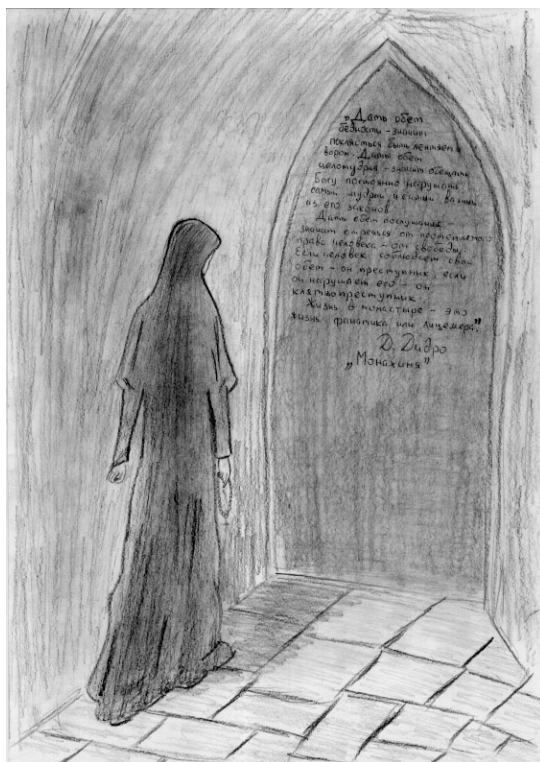 „Дать обет
бедности - значит
поклясться быть лентяем и
вором. Дать обет
целомудрия - значит обещать
Богу постоянно нарушать
самый мудрый и самый важный
из его законов.
Дать обет послушания
значит отречься от неотъемлемого
права человека - от свободы.
Если человек соблюдает свой
обет - он преступник, если
он нарушает его - он
клятвопреступник.
Жизнь в монастыре - это
жизнь фанатика или лицемера."
Д. Дидро
„Монахиня"